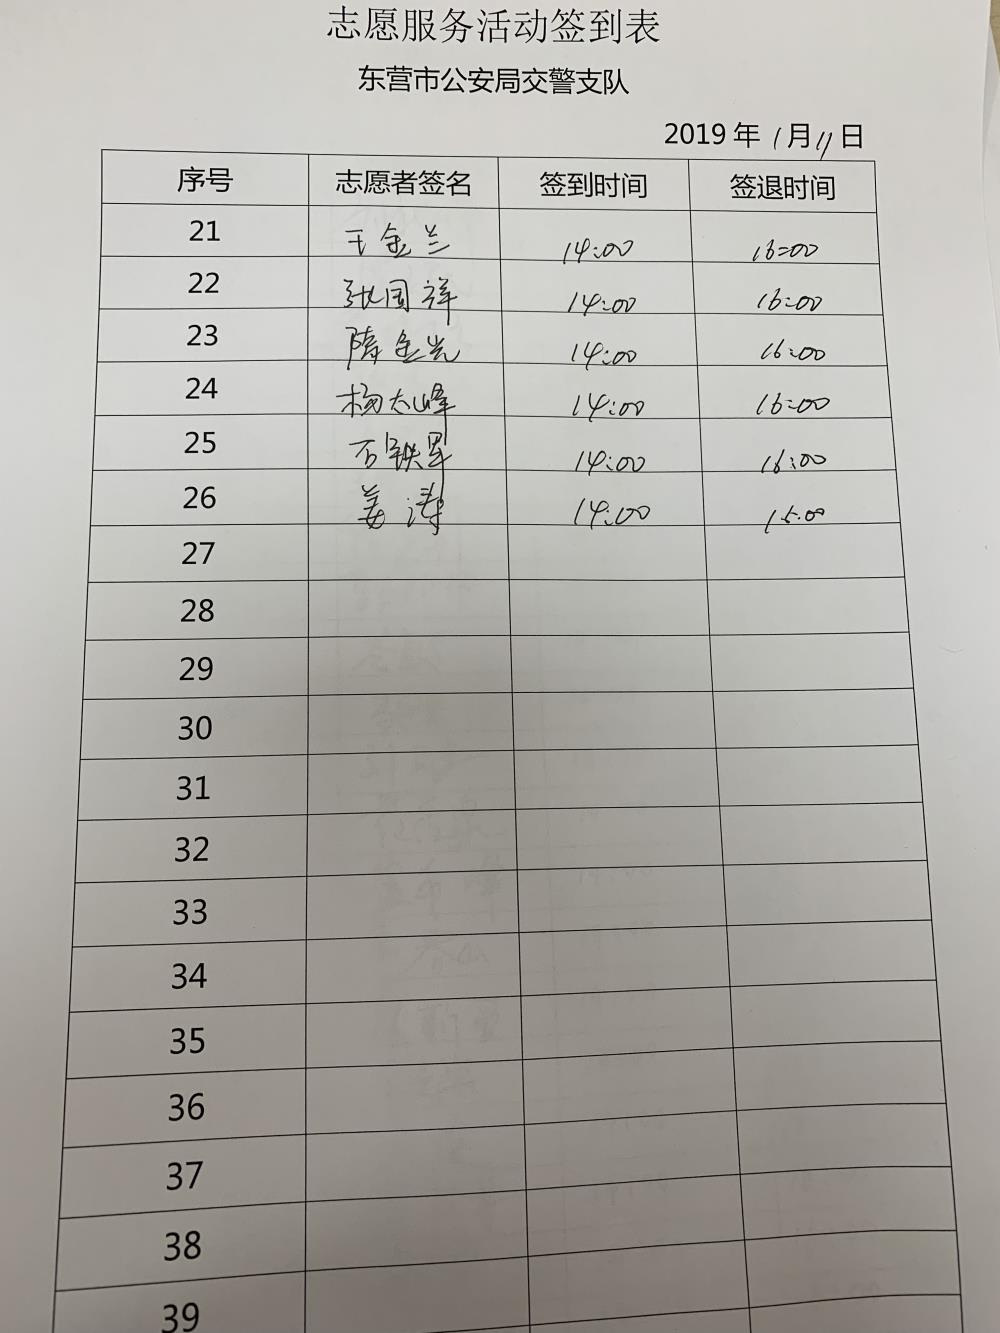 志愿服务活动签到表
东营市公安局交警支队
2019 年 1 月 11 日
序号 志愿者签名 签到时间 签退时间
21 王金兰 14:00 16:00
22 张国祥 14:00 16:00
23 隋金光 14:00 16:00
24 杨太峰 14:00 16:00
25 石铁军 14:00 16:00
26 姜涛 14:00 15:00
27
28
29
30
31
32
33
34
35
36
37
38
39